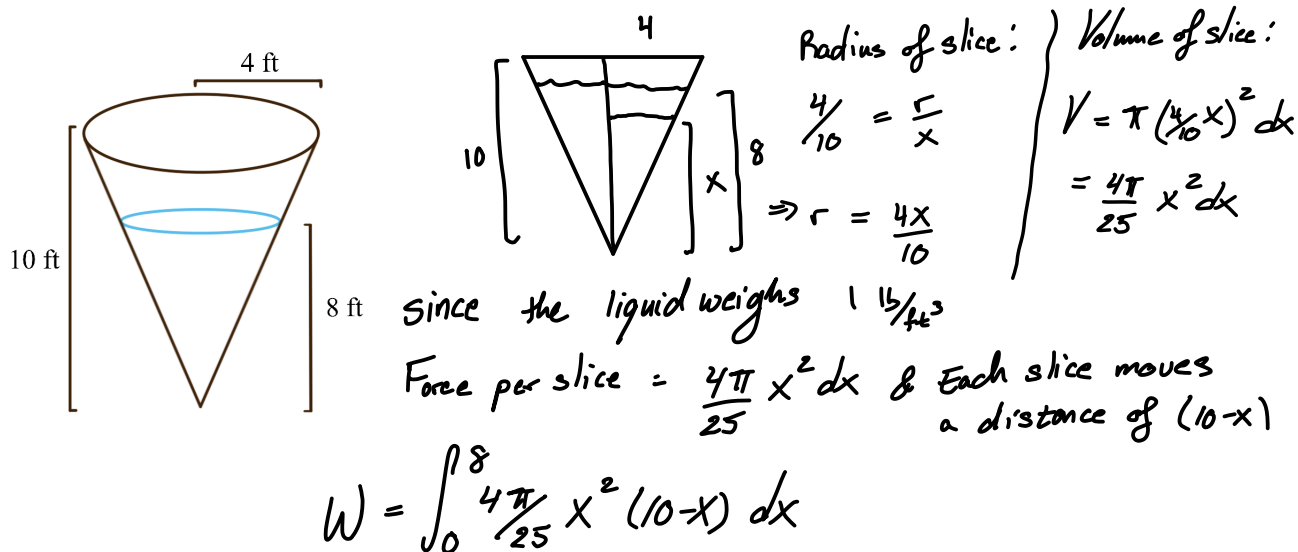 4 ft
10 ft
8 ft
4
10
x
8
Radius of slice:
4/10 = r/x
⇒ r = 4x/10
Volume of slice:
V = π(4/10 x)² dx
= 4π/25 x² dx
since the liquid weighs 1 lb/ft³
Force per slice = 4π/25 x² dx & Each slice moves
a distance of (10-x)
W = ∫₀⁸ 4π/25 x² (10-x) dx